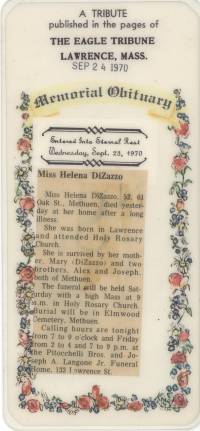 A TRIBUTE
published in the pages of
THE EAGLE TRIBUNE
LAWRENCE, MASS.
SEP 24 1970
Memorial Obituary
Entered Into Eternal Rest
Wednesday, Sept. 23, 1970
Miss Helena DiZazzo
Miss Helena DiZazzo, 52, 61
Oak St., Methuen, died yester-
day at her home after a long
illness.
She was born in Lawrence
and attended Holy Rosary
Church.
She is survived by her moth-
er, Mary (DiZazzo) and two
brothers, Alex and Joseph,
both of Methuen.
The funeral will be held Sat-
urday with a high Mass at 9
a.m. in Holy Rosary Church.
Burial will be in Elmwood
Cemetery, Methuen.
Calling hours are tonight
from 7 to 9 o'clock and Friday
from 2 to 4 and 7 to 9 p.m. at
the Pitocchelli Bros. and Jo-
seph A. Langone Jr. Funeral
Home, 133 Lawrence St.